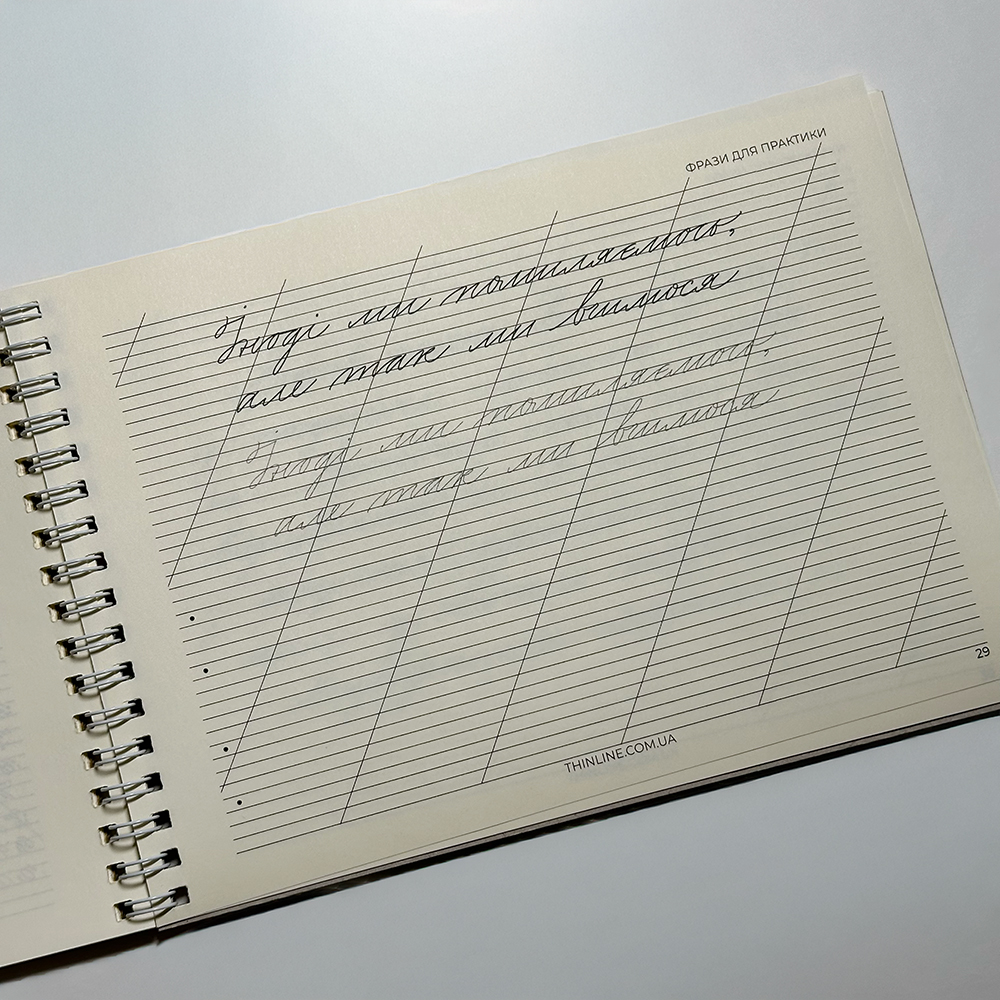 ФРАЗИ ДЛЯ ПРАКТИКИ
Іноді ми помиляємось,
але так ми вчимося
Іноді ми помиляємось,
але так ми вчимося
THINLINE.COM.UA
29